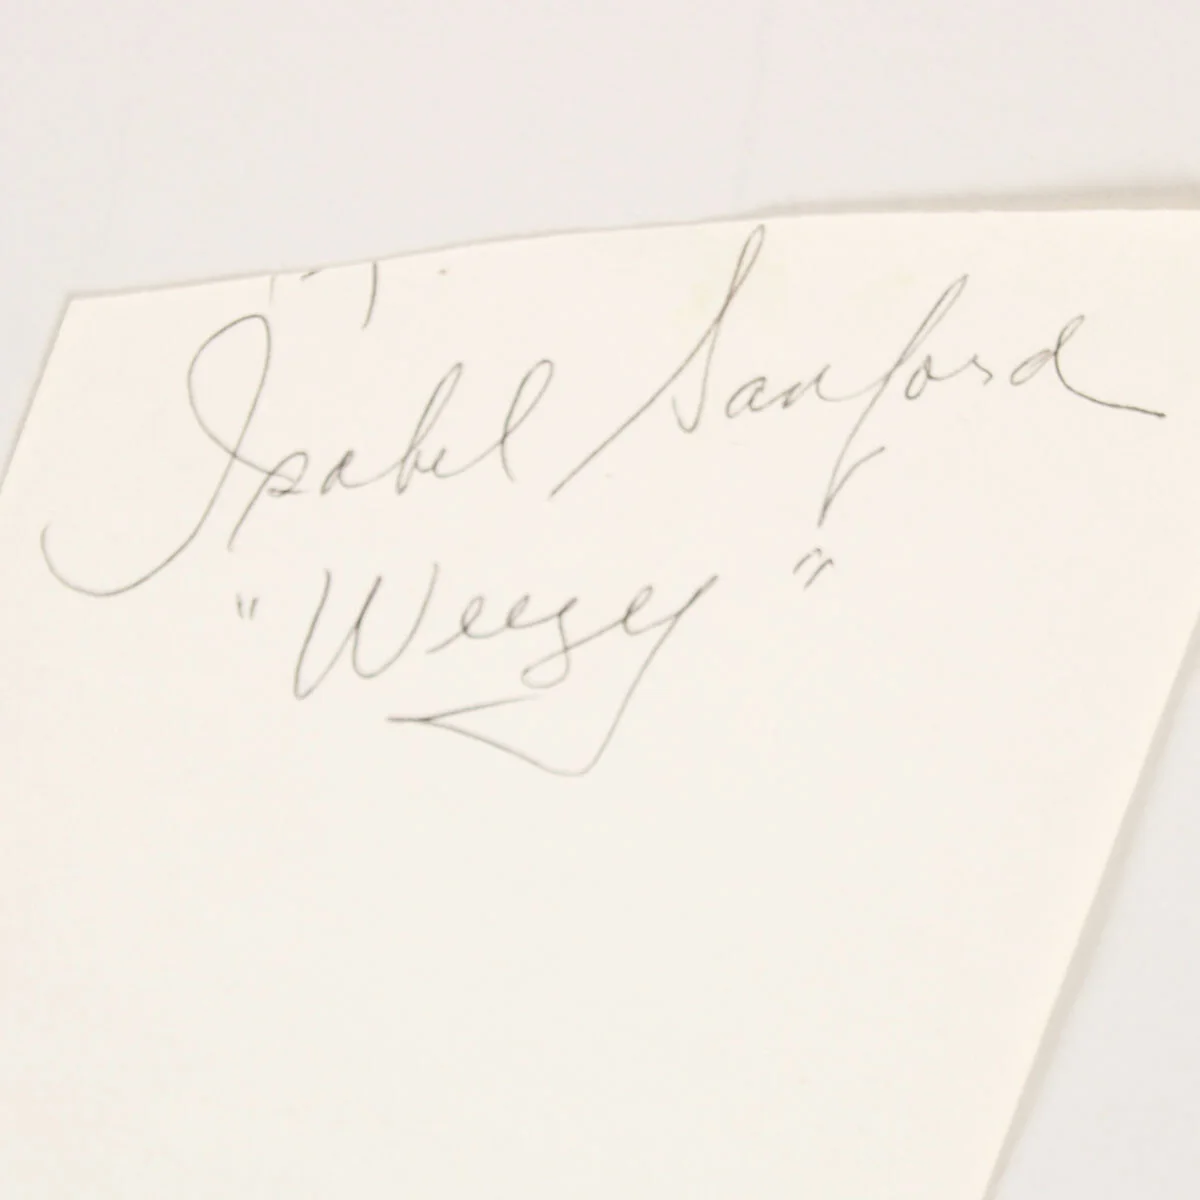 Isabel Sanford
"Weezy"